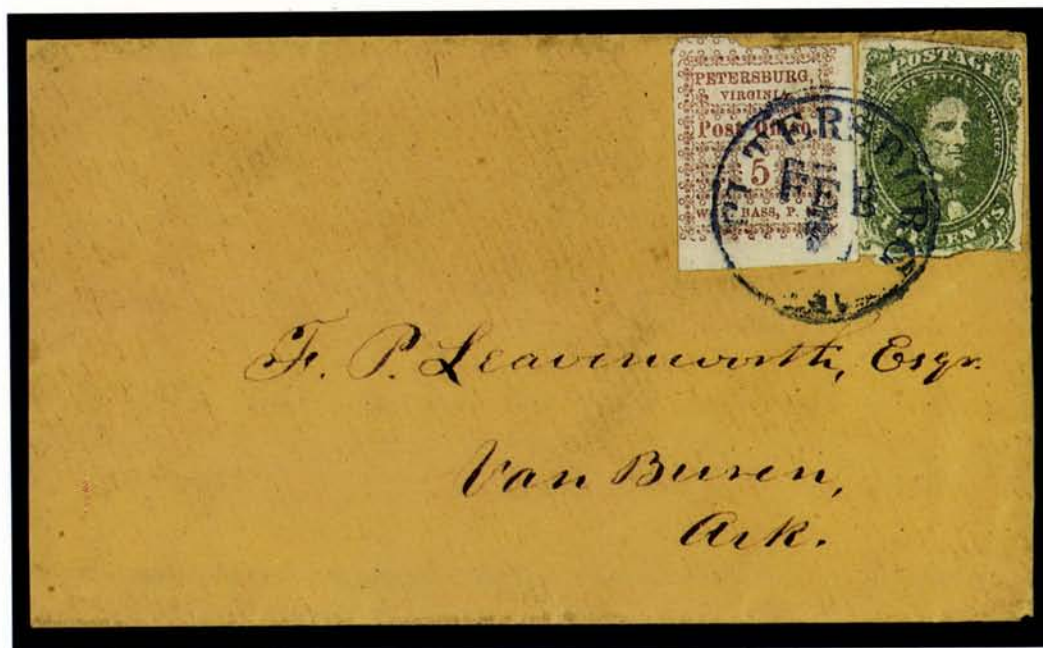 PETERSBURG,
VIRGINIA
Post Office.
5
W. BASS, P.
POSTAGE
CENTS
PETERSBURG
FEB
F. P. Leavenworth, Esqr.
Van Buren,
Ark.